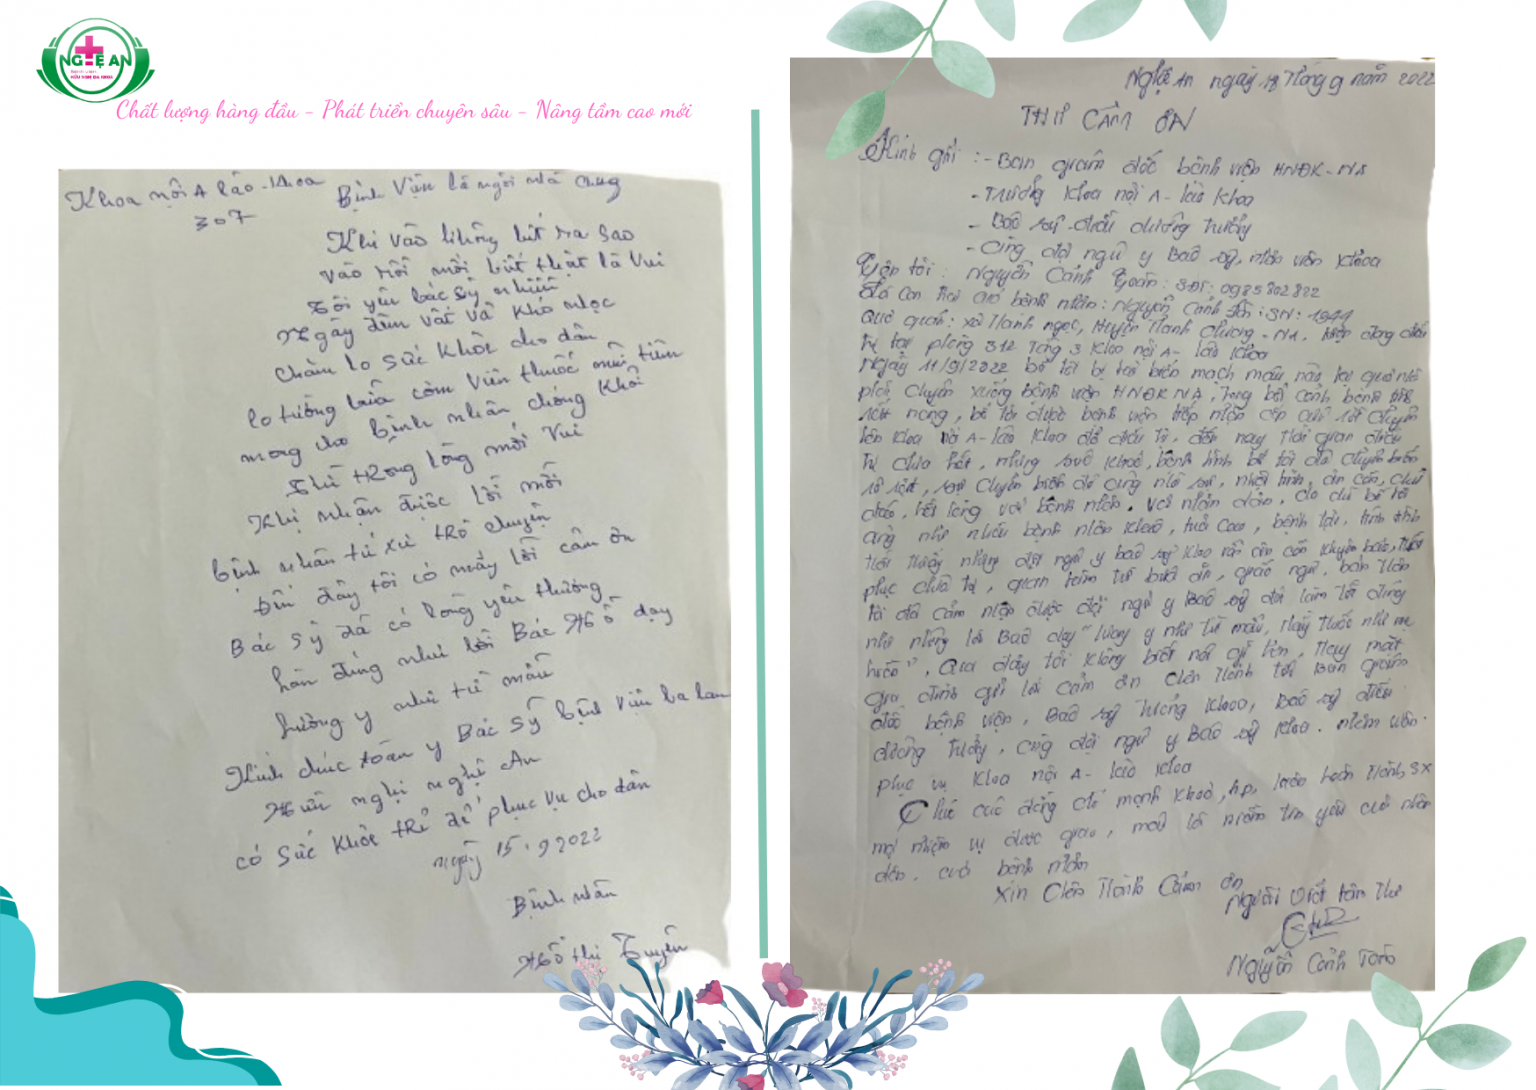 NGHỆ AN
Chất lượng hàng đầu - Phát triển chuyên sâu - Nâng tầm cao mới
Khoa nội A lão-khoa
307
Bệnh Viện là ngôi nhà chung
Khi vào không biết ra sao
vào rồi mới biết thật là vui
Tôi yêu bác sỹ nhiều
Ngày đêm vất vả khó nhọc
chăm lo sức khỏe cho dân
lo từng bữa cơm viên thuốc mũi tiêm
mong cho bệnh nhân chóng khỏi
Thì trong lòng mới vui
Khi nhận được lời mời
bệnh nhân tứ xứ trò chuyện
đến đây tôi có mấy lời cảm ơn
Bác sỹ đã có lòng yêu thương
hàn đúng như lời Bác Hồ dạy
lương y như từ mẫu
Kính chúc toàn y Bác sỹ bệnh viện đa khoa
Hữu nghị nghệ An
có sức khỏe trẻ để phục vụ cho dân
ngày 15.9.2022
Bệnh nhân
Hồ thị Truyền
Nghệ An ngày 18 tháng 9 năm 2022
THƯ CẢM ƠN
Kính gửi : - Ban giám đốc bệnh viện HNĐK-NA
- Trưởng khoa nội A-lão khoa
- Bác sỹ điều dưỡng trưởng
- Cùng đội ngũ y Bác sỹ, nhân viên khoa
Tên tôi : Nguyễn Cảnh Toàn : SĐT: 0985802822
Là con trai của bệnh nhân : Nguyễn Cảnh : SN: 1941
Quê quán: xã Thanh Ngọc, Huyện Thanh Chương - NA. Hiện đang điều
trị tại phòng 312 Tầng 3 khoa nội A- lão khoa
Ngày 11/9/2022 bố tôi bị tai biến mạch máu não tại quê nhà
phải chuyển xuống bệnh viện HNĐKNA, trong bối cảnh bệnh tình
rất nặng, bố tôi được bệnh viện tiếp nhận cấp cứu rồi chuyển
lên khoa nội A-lão khoa để điều trị, đến nay thời gian điều
trị chưa hết, nhưng sức khoẻ, bệnh tình bố tôi đã chuyển biến
rõ rệt, sự chuyển biến đó cũng nhờ sự, nhiệt tình, ân cần, chu
đáo, hết lòng với bệnh nhân. với nhân dân, cho dù bố tôi
cũng như nhiều bệnh nhân khác, tuổi cao, bệnh tật, tính tình
thất thường nhưng đội ngũ y bác sỹ khoa vẫn ân cần khuyên bảo, thuyết
phục chữa trị, quan tâm từ bữa ăn, giấc ngủ, bản thân
tôi đã cảm nhận được đội ngũ y Bác sỹ đã làm tốt đúng
như những lời Bác dạy "lương y như từ mẫu, thầy thuốc như mẹ
hiền", Qua đây tôi không biết nói gì hơn, thay mặt
gia đình gửi lời cảm ơn chân thành tới Ban giám
đốc bệnh viện, Bác sỹ trưởng khoa, Bác sỹ điều
dưỡng trưởng, cùng đội ngũ y Bác sỹ khoa. nhân viên
phục vụ khoa nội A- lão khoa
Chúc các đồng chí mạnh khoẻ, h.p, luôn hoàn thành SX
mọi nhiệm vụ được giao, mãi là niềm tin yêu của nhân
dân. của bệnh nhân
Xin chân thành cảm ơn
Người viết tâm thư
Nguyễn Cảnh Toàn